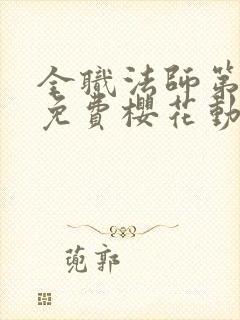 全職法師第
免費櫻花動
蔸郭